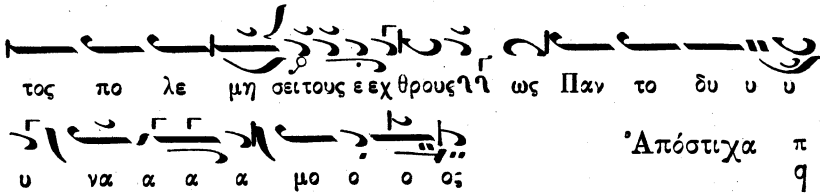 τος πο λε μη σει τους ε εχ θρους ϡϡ ως Παν το δυ υ υ
υ να α α α α μο ο ο ος Ἀπόστιχα π
q